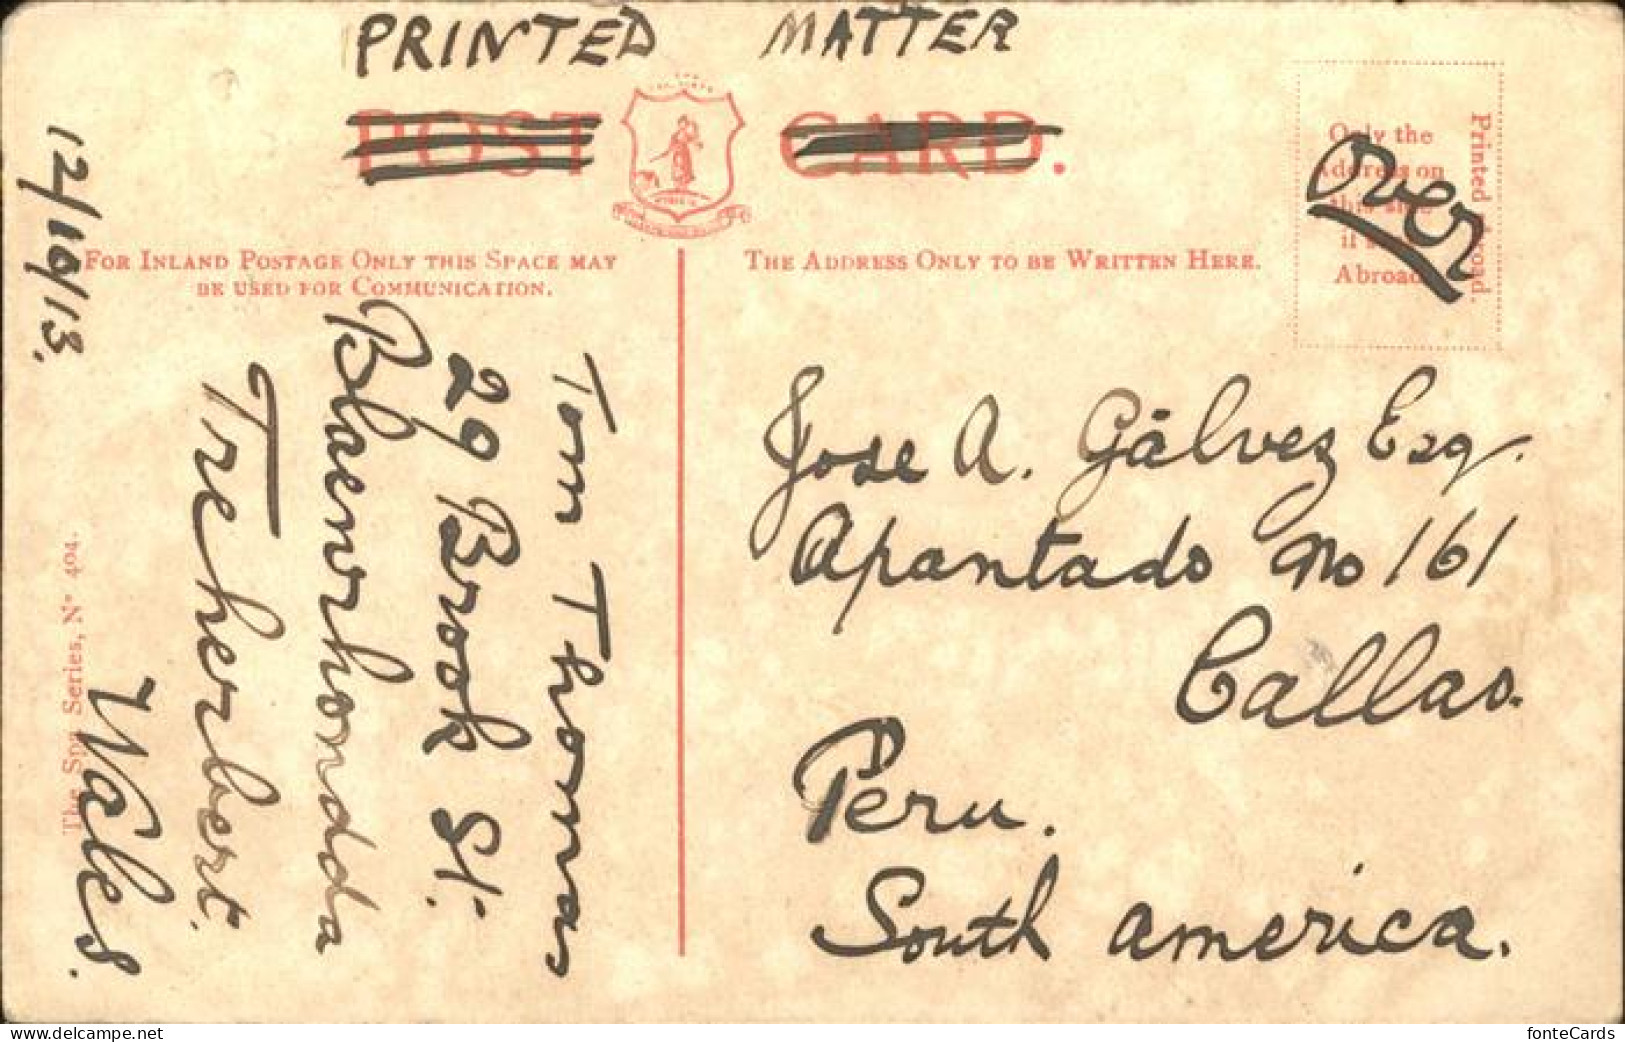 PRINTED MATTER
POST CARD.
FOR INLAND POSTAGE ONLY THIS SPACE MAY
BE USED FOR COMMUNICATION.
THE ADDRESS ONLY TO BE WRITTEN HERE.
Only the
Address on
this side
if
Abroad
Printed Abroad.
Over
12/10/13.
Tom Thomas
29 Brook St.
Blaenrhondda
Treherbert.
Wales.
The Spa Series, Nº 404.
Jose A. Gálvez Esq.
Apantado No 161
Callao.
Peru.
South america.
www.delcampe.net
fonteCards